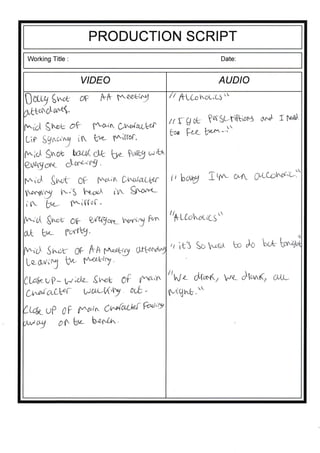 PRODUCTION SCRIPT
Working Title :
Date:
VIDEO
AUDIO
Dolly Shot OF AA Meeting
attendants.
"Alcoholics"
Mid Shot OF Main Character
Lip Syncing in the Mirror.
"I got Perscriptions and I need
too Fee them..."
Mid Shot back at the Party with
everyone dancing.
Mid Shot OF Main Character
hanging his head in Shame
in the Mirror.
"baby I'm an alcoholic"
Mid Shot OF everyone having fun
at the Party.
"Alcoholics"
Mid Shot OF AA Meeting attending
Leaving the Meeting.
"it's So hard to do but tonight
Close UP - wide Shot OF Main
Character walking out.
"We drank, we drank, all
Night."
Close UP OF Main Character
away on the bench.